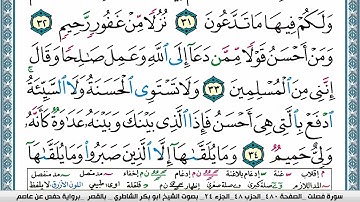 وَلَكُمْ فِيهَا مَا تَدَّعُونَ ٣١ نُزُلًا مِّنْ غَفُورٍ رَّحِيمٍ ٣٢
وَمَنْ أَحْسَنُ قَوْلًا مِّمَّن دَعَا إِلَى اللَّهِ وَعَمِلَ صَالِحًا وَقَالَ
إِنَّنِي مِنَ الْمُسْلِمِينَ ٣٣ وَلَا تَسْتَوِي الْحَسَنَةُ وَلَا السَّيِّئَةُ
ادْفَعْ بِالَّتِي هِيَ أَحْسَنُ فَإِذَا الَّذِي بَيْنَكَ وَبَيْنَهُ عَدَاوَةٌ كَأَنَّهُ
وَلِيٌّ حَمِيمٌ ٣٤ وَمَا يُلَقَّاهَا إِلَّا الَّذِينَ صَبَرُوا وَمَا يُلَقَّاهَا
سورة فصلت - الصفحة ٤٨٠ - الحزب ٤٨ - الجزء ٢٤ - بصوت الشيخ أبو بكر الشاطري - بالقصر - رواية حفص عن عاصم